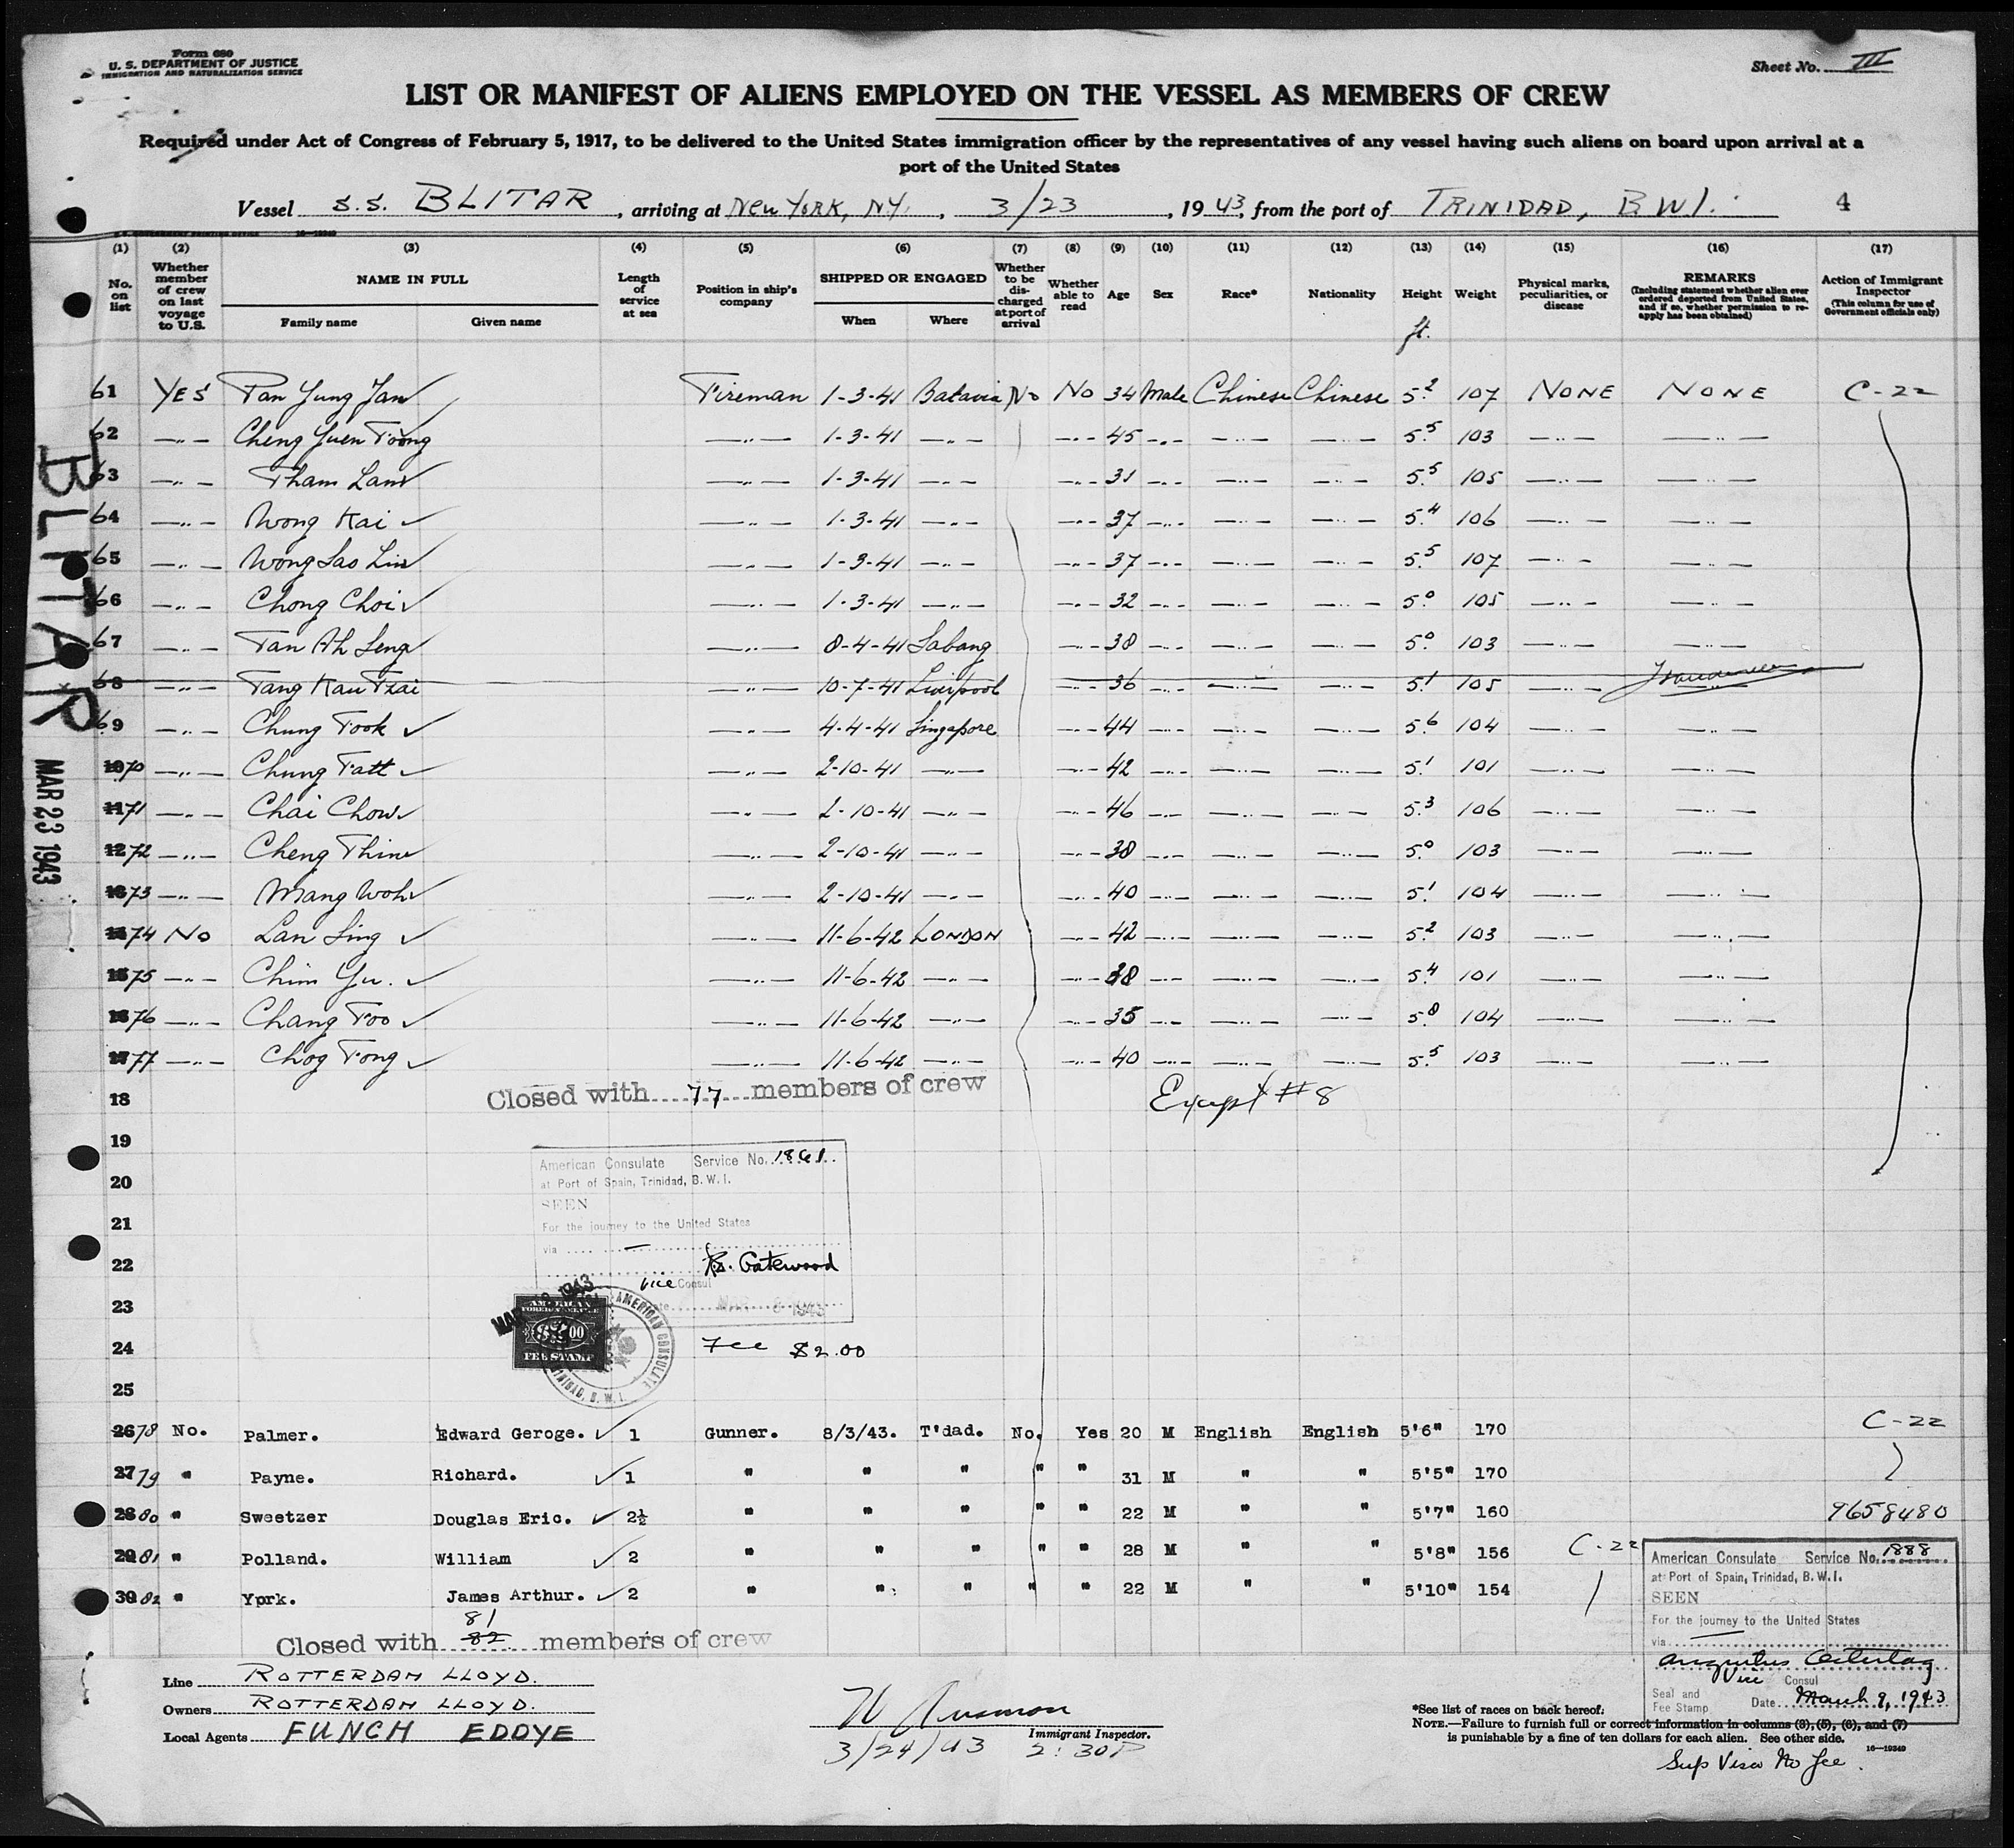 Form 680
U. S. DEPARTMENT OF JUSTICE
IMMIGRATION AND NATURALIZATION SERVICE
Sheet No. III
LIST OR MANIFEST OF ALIENS EMPLOYED ON THE VESSEL AS MEMBERS OF CREW
Required under Act of Congress of February 5, 1917, to be delivered to the United States immigration officer by the representatives of any vessel having such aliens on board upon arrival at a
port of the United States
Vessel S.S. BLITAR, arriving at New York, N.Y., 3/23, 1943, from the port of TRINIDAD, B.W.I. 4
(1) (2) (3) (4) (5) (6) (7) (8) (9) (10) (11) (12) (13) (14) (15) (16) (17)
No. on list Whether member of crew on last voyage to U.S. NAME IN FULL Family name Given name Length of service at sea Position in ship's company SHIPPED OR ENGAGED When Where Whether to be discharged at port of arrival Whether able to read Age Sex Race* Nationality Height Weight Physical marks, peculiarities, or disease REMARKS (Including statement whether alien ever ordered deported from United States, and if so, whether permission to reapply has been obtained) Action of Immigrant Inspector (This column for use of Government officials only)
ft.
61 YES Pan Yung Jan Fireman 1-3-41 Batavia No No 34 Male Chinese Chinese 5.2 107 NONE NONE C-22
62 —"— Cheng Yuen Toong —"— 1-3-41 —"— —"— 45 —"— —"— —"— 5.5 103 —"— —"—
63 —"— Tham Lam —"— 1-3-41 —"— —"— 31 —"— —"— —"— 5.5 105 —"— —"—
64 —"— Wong Kai —"— 1-3-41 —"— —"— 37 —"— —"— —"— 5.4 106 —"— —"—
65 —"— Wong Sao Lin —"— 1-3-41 —"— —"— 37 —"— —"— —"— 5.5 107 —"— —"—
66 —"— Chong Choi —"— 1-3-41 —"— —"— 32 —"— —"— —"— 5.0 105 —"— —"—
67 —"— Tan Ah Seng —"— 8-4-41 Sabang —"— 38 —"— —"— —"— 5.0 103 —"— —"—
68 —"— Tang Kau Tzai —"— 10-7-41 Liverpool —"— 36 —"— —"— —"— 5.1 105 —"— —"—
69 —"— Chung Took —"— 4-4-41 Singapore —"— 44 —"— —"— —"— 5.6 104 —"— —"—
10 70 —"— Chung Tatt —"— 2-10-41 —"— —"— 42 —"— —"— —"— 5.1 101 —"— —"—
11 71 —"— Chai Chow —"— 2-10-41 —"— —"— 46 —"— —"— —"— 5.3 106 —"— —"—
12 72 —"— Cheng Thin —"— 2-10-41 —"— —"— 38 —"— —"— —"— 5.0 103 —"— —"—
13 73 —"— Mang Woh —"— 2-10-41 —"— —"— 40 —"— —"— —"— 5.1 104 —"— —"—
14 74 No Lan Sing —"— 11-6-42 LONDON —"— 42 —"— —"— —"— 5.2 103 —"— —"—
15 75 —"— Chim Yu. —"— 11-6-42 —"— —"— 38 —"— —"— —"— 5.4 101 —"— —"—
16 76 —"— Chang Foo —"— 11-6-42 —"— —"— 35 —"— —"— —"— 5.8 104 —"— —"—
17 77 —"— Chog Fong —"— 11-6-42 —"— —"— 40 —"— —"— —"— 5.5 103 —"— —"—
BLITAR
MAR 23 1943
Closed with 77 members of crew
Except #8
18
19
American Consulate Service No. 1861
20
at Port of Spain, Trinidad, B. W. I.
SEEN
21
For the journey to the United States
via
22
Gatewood
Vice Consul
23
AMERICAN FOREIGN SERVICE
$2.00
FEE STAMP
AMERICAN CONSULATE
TRINIDAD, B. W. I.
24
Fee $2.00
25
26 78 No. Palmer. Edward Geroge. 1 Gunner. 8/3/43. T'dad. No. Yes 20 M English English 5'6" 170 C-22
27 79 " Payne. Richard. 1 " " " " " 31 M " " 5'5" 170
28 80 " Sweetzer Douglas Eric. 2½ " " " " " 22 M " " 5'7" 160 9658480
29 81 " Polland. William 2 " " " " " 28 M " " 5'8" 156 C-22
30 82 " York. James Arthur. 2 " " " " " 22 M " " 5'10" 154
81
Closed with 82 members of crew
American Consulate Service No. 1888
at Port of Spain, Trinidad, B. W. I.
SEEN
For the journey to the United States
via
Vice Consul
Seal and Fee Stamp Date March 9, 1943
Line ROTTERDAM LLOYD.
Owners ROTTERDAM LLOYD.
Local Agents FUNCH EDDYE
Immigrant Inspector.
3/24/43 2:30P
*See list of races on back hereof.
NOTE.—Failure to furnish full or correct information in columns (3), (5), (6), and (7)
is punishable by a fine of ten dollars for each alien. See other side.
16—19349
Sup Visa No fee.